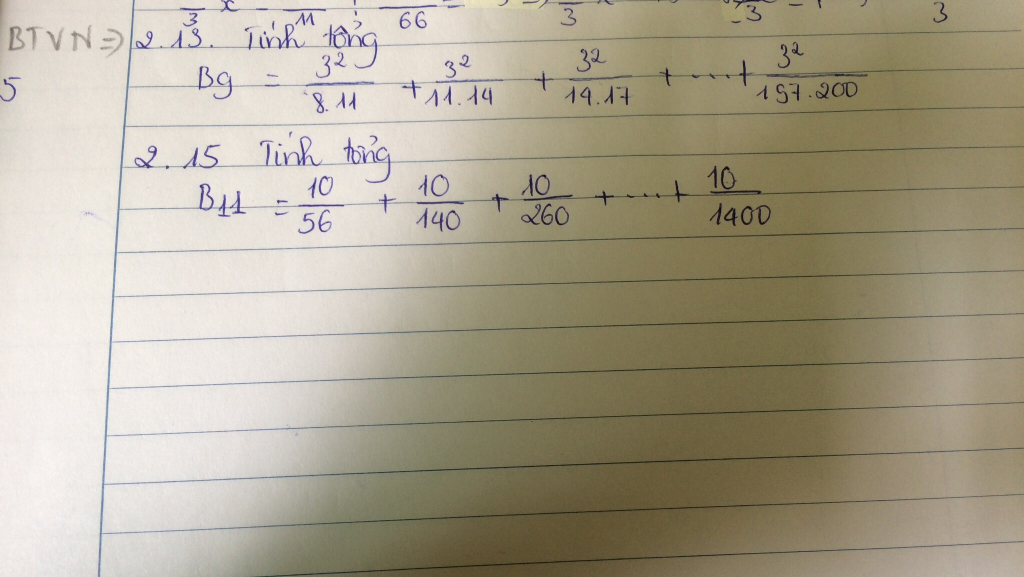 3 x - 11 66 = 3 -3 3
BTVN => 2.13. Tính tổng
5 B9 = 3²/8.11 + 3²/11.14 + 3²/14.17 + ... + 3²/197.200
2.15 Tính tổng
B11 = 10/56 + 10/140 + 10/260 + ... + 10/1400